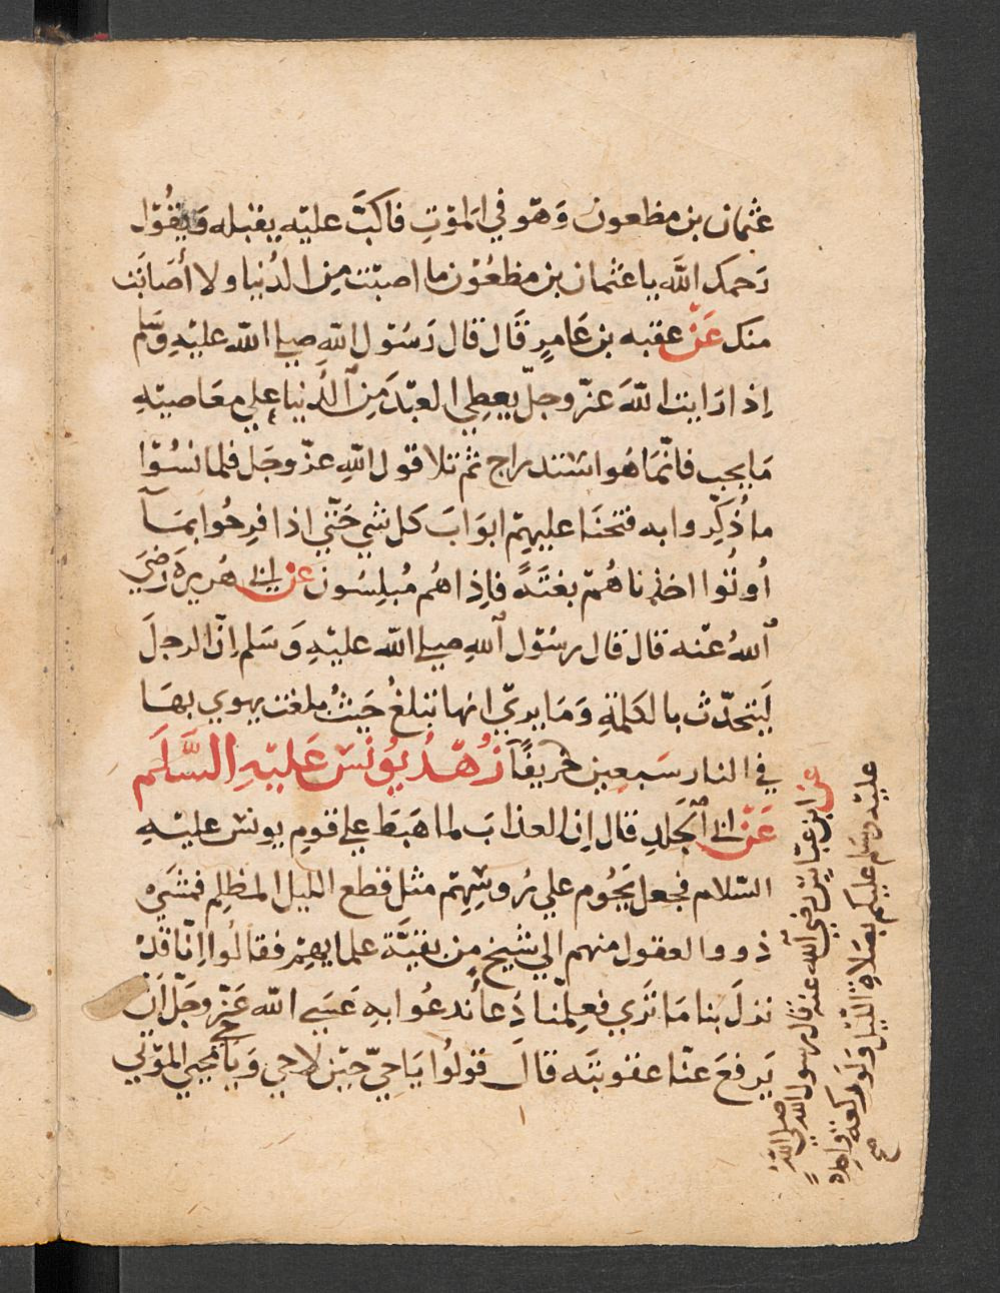 عثمان بن مظعون وَهو في الموْتِ فاكبَّ عليْه يقبله وَيقُوْل
رَحمك اللَّه يا عثمان بن مظعُوْن ما اصبْت مِن الدُنيا ولا أصَابَت
منك عَنْ عقبه بن عَامرٍ قَال قال رَسُوْل اللّهِ صلي اللّه عليْهِ وَسَلم
اِذا رَايت اللّهَ عزّ وجلّ يعطِي العبْدَ مِنَ الدُنيا علي مَعَاصيْهِ
مَا يحب فانّمَا هُو استدراج ثم تلا قول اللّهِ عزّ وجَل فلما نسُوْا
ما ذُكِّروا به فتحنَا عليهِمْ ابوَابَ كل شي حَتّي اذا فرِحُوا بمَآ
اُوتُوا اخذناهُمْ بغتَةً فاِذا هُم مُبلِسُون عن ابي هُريرَة رَضيَ
اللهُ عنه قال قال رسُوْل اللهِ صلي اللّه عليْهِ وَسَلم اِنّ الرجلَ
لَيتحدّث بالكلمَةِ وَمَا يريّ انها تبلغُ حَيثُ بلغت يهوي بهَا
في النار سَبعِين خريفًا زُهْدُ يُوْنسَ عَليْهِ السَّلَم
عَنْ ابي الجَلدِ قال اِن العذابَ لما هَبَطَ علي قومِ يونسَ عليْهِ
السّلام فجعل يَحُوم علي رُوسِهِمْ مثل قطع الليل المظلِم فمشَي
ذووا العقول منهم الي شيخٍ مِن بقيّة علمايهِمْ فقالُوا اِنّا قدْ
نزلَ بنا مَا تَري فعِلمْنا دَعاً ندعُوا بهِ عَسَي اللّه عَزّ وجَلّ اَنْ
يَرفعَ عنّا عقوبتَه قالَ قولُوا يَا حيّ حيْن لا حي وَيَا محيي الموْتي
عن ابن عبّاسٍ رضي الله عنه قال رسول الله صلي اللهُ
عليْه وسَلم عليكم بصَلاةِ الليْل وَلَو ركعة واحدة